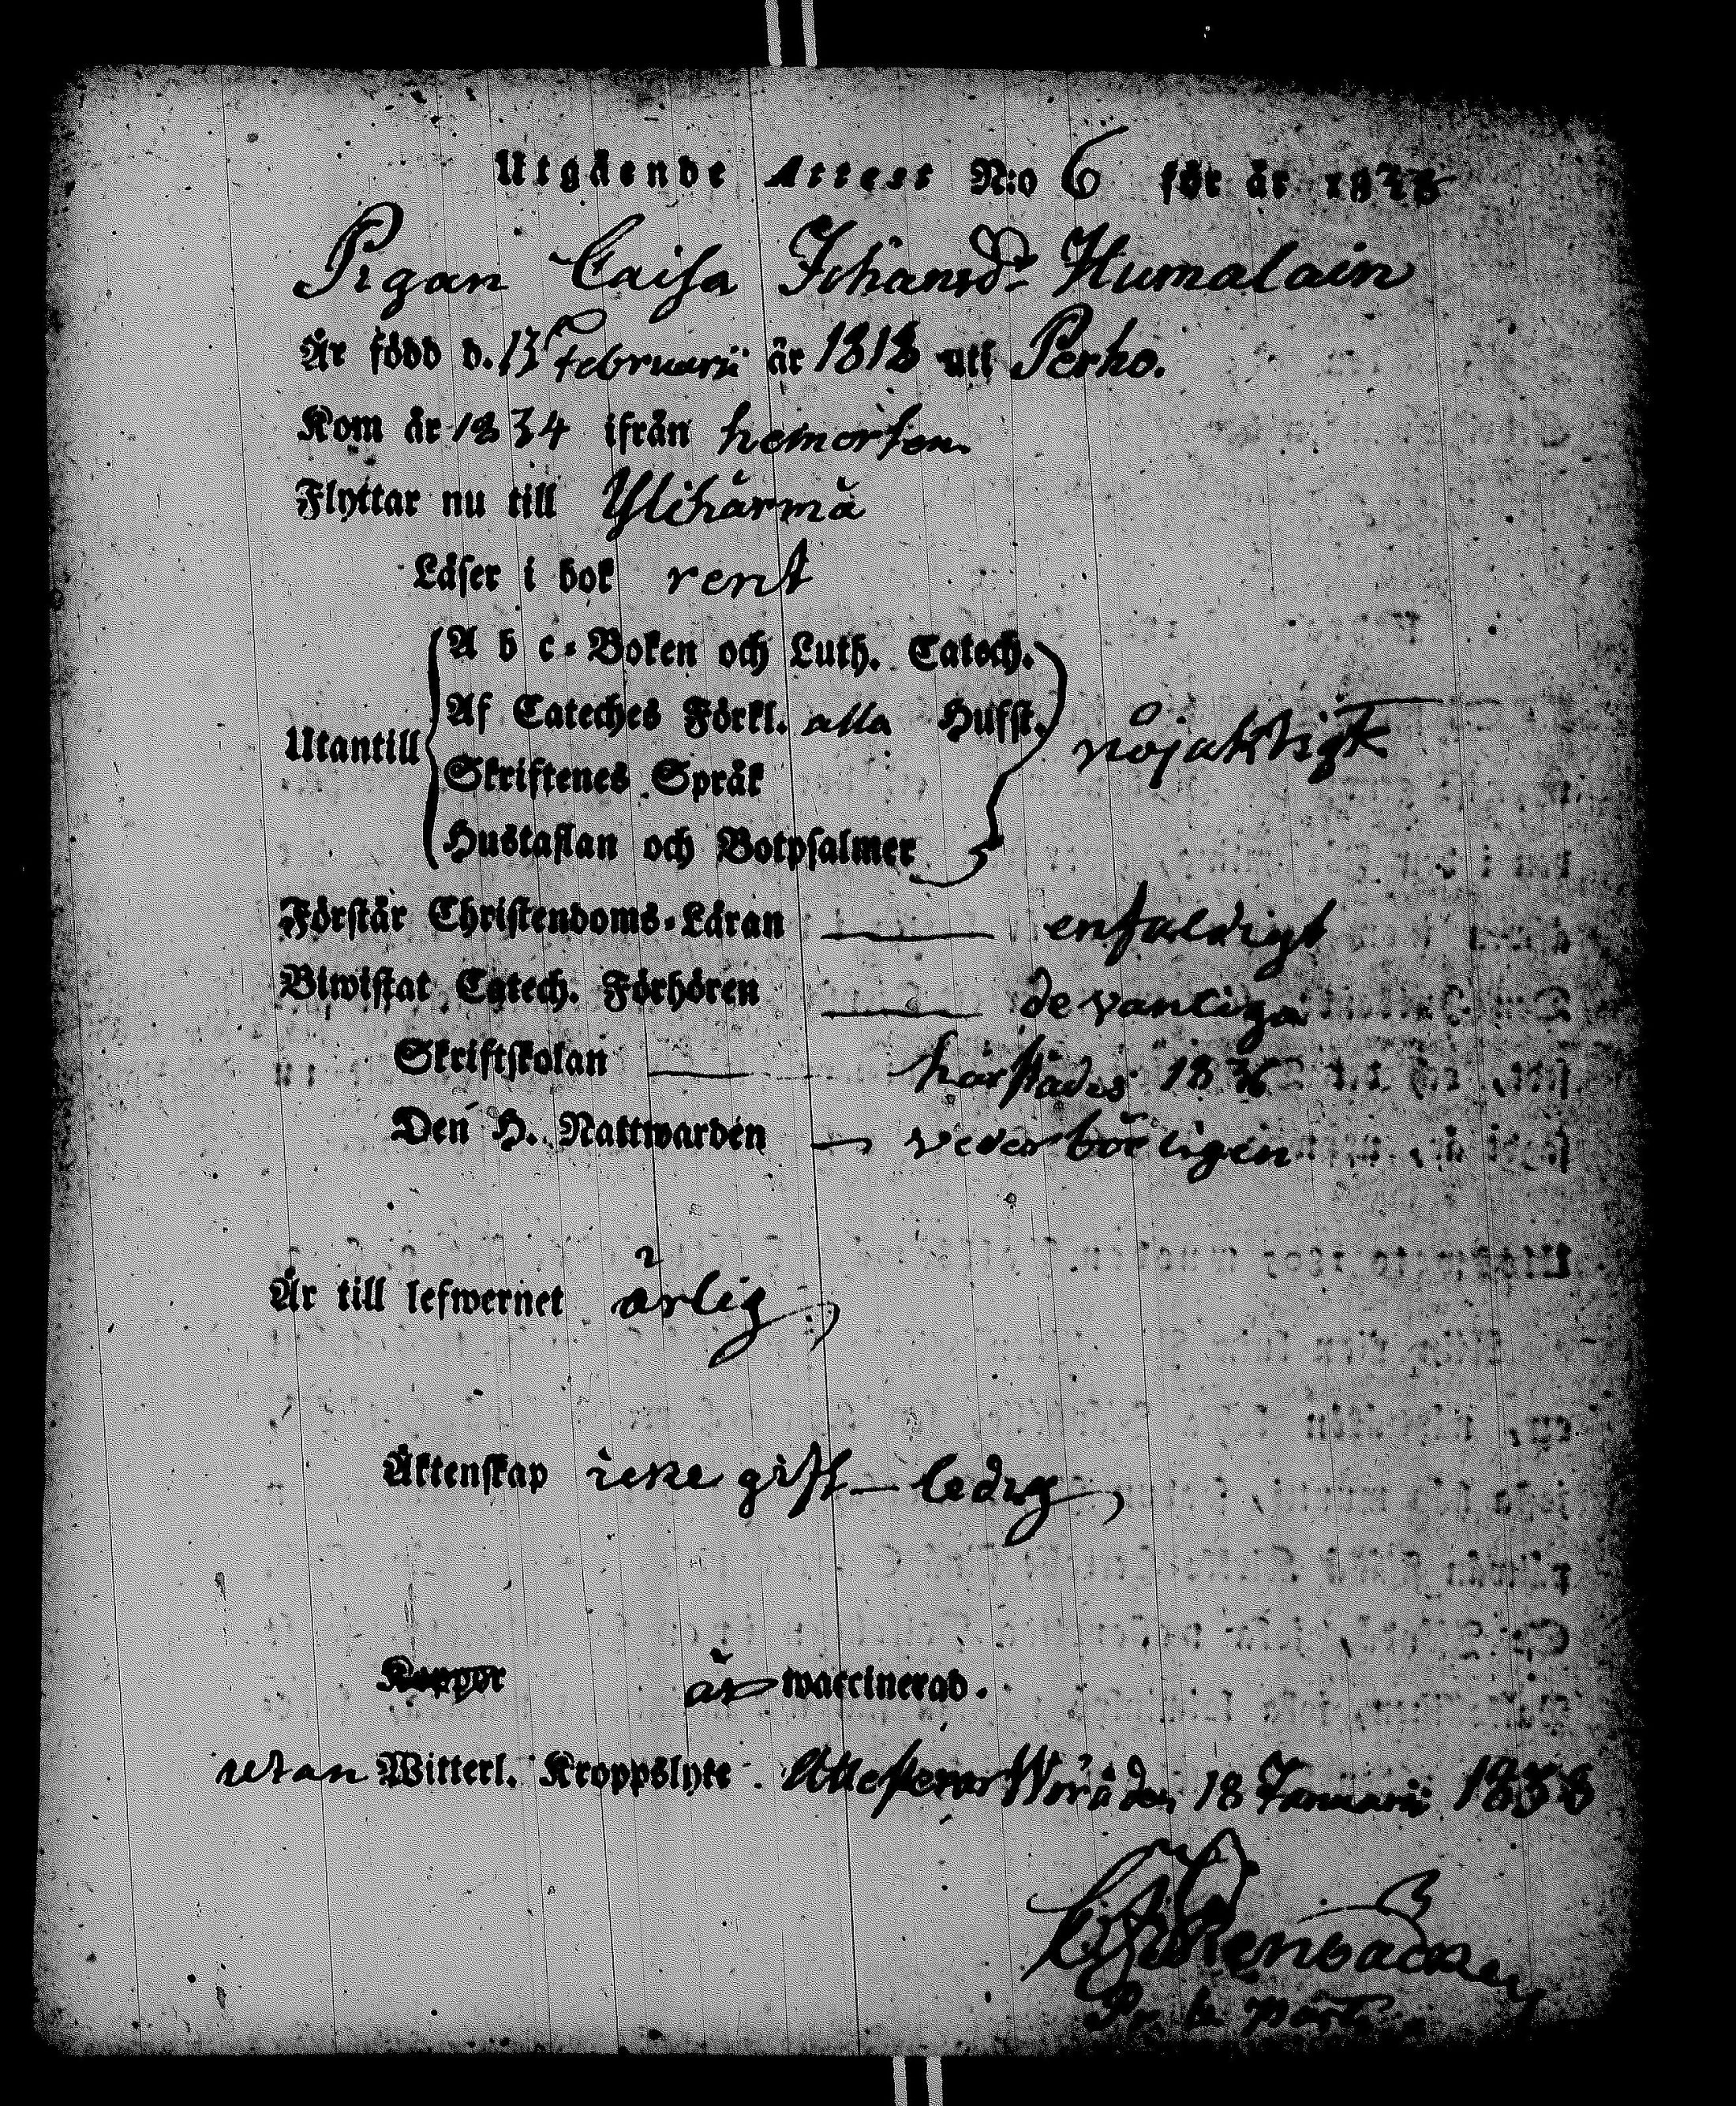 Utgående Attest N:o 6 för år 1838
Pigan Caisa Johansd:r Humalain
Är född d. 13 Februarii år 1818 uti Perho.
Kom år 1834 ifrån hemorten
Flyttar nu till Ylihärmä
Läser i bok rent
A b c-Boken och Luth. Catech.
Af Cateches Förkl. alla Hufst.
Utantill nöjaktigt
Skriftenes Språk
Hustaflan och Botpsalmer
Förstår Christendoms-Läran enfaldigt
Biwistat Catech. Förhören de vanliga
Skriftskolan härstädes 1836
Den H. Nattwarden vederbörligen
Är till lefwernet ärlig,
Äktenskap icke gift - ledig,
Koppor är waccinerad.
utan Witterl. Kroppslyte. Attesterar Wörå den 18 Januarii 1838